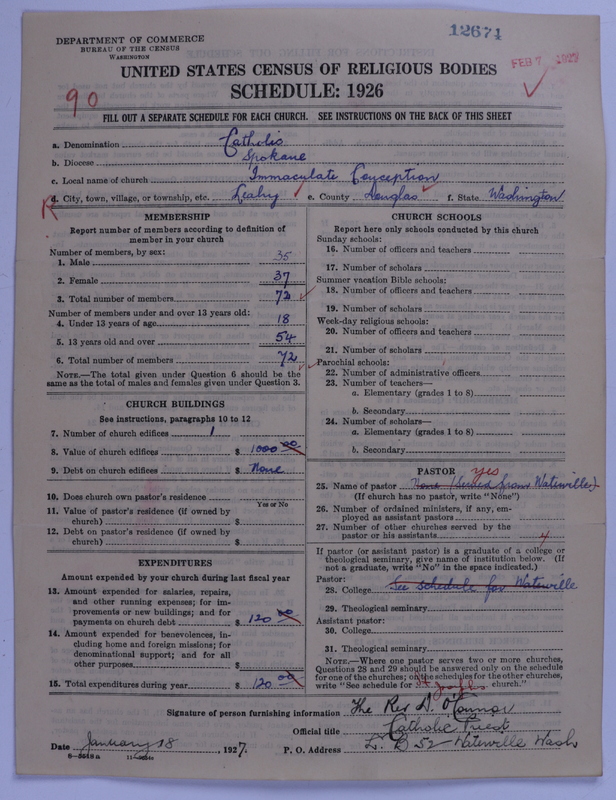 12671
DEPARTMENT OF COMMERCE
BUREAU OF THE CENSUS
WASHINGTON
FEB 7 1927
UNITED STATES CENSUS OF RELIGIOUS BODIES
SCHEDULE: 1926
90
FILL OUT A SEPARATE SCHEDULE FOR EACH CHURCH. SEE INSTRUCTIONS ON THE BACK OF THIS SHEET
a. Denomination Catholic
b. Diocese Spokane
c. Local name of church Immaculate Conception
R d. City, town, village, or township, etc. Leahy e. County Douglas f. State Washington
MEMBERSHIP
Report number of members according to definition of
member in your church
Number of members, by sex:
1. Male 35
2. Female 37
3. Total number of members 72
Number of members under and over 13 years old:
4. Under 13 years of age 18
5. 13 years old and over 54
6. Total number of members 72
NOTE.—The total given under Question 6 should be
same as the total of males and females given under Question 3.
CHURCH BUILDINGS
See instructions, paragraphs 10 to 12
7. Number of church edifices 1
8. Value of church edifices $ 1000 00
9. Debt on church edifices $ None
10. Does church own pastor's residence
Yes or No
11. Value of pastor's residence (if owned by
church) $
12. Debt on pastor's residence (if owned by
church) $
EXPENDITURES
Amount expended by your church during last fiscal year
13. Amount expended for salaries, repairs,
and other running expenses; for im-
provements or new buildings; and for
payments on church debt $ 120 00
14. Amount expended for benevolences, in-
cluding home and foreign missions; for
denominational support; and for all
other purposes $
15. Total expenditures during year $ 120 00
CHURCH SCHOOLS
Report here only schools conducted by this church
Sunday schools:
16. Number of officers and teachers
17. Number of scholars
Summer vacation Bible schools:
18. Number of officers and teachers
19. Number of scholars
Week-day religious schools:
20. Number of officers and teachers
21. Number of scholars
Parochial schools:
22. Number of administrative officers
23. Number of teachers—
a. Elementary (grades 1 to 8)
b. Secondary
24. Number of scholars—
a. Elementary (grades 1 to 8)
b. Secondary
PASTOR
yes
25. Name of pastor None (Served from Waterville)
(If church has no pastor, write "None")
26. Number of ordained ministers, if any, em-
ployed as assistant pastors
27. Number of other churches served by the
pastor or his assistants 4
If pastor (or assistant pastor) is a graduate of a college or
theological seminary, give name of institution below. (If
not a graduate, write "No" in the space indicated.)
Pastor:
28. College See schedule for Waterville
29. Theological seminary
Assistant pastor:
30. College
31. Theological seminary
NOTE.—Where one pastor serves two or more churches,
Questions 28 and 29 should be answered only on the schedule
for one of the churches; on the schedules for the other churches,
write "See schedule for St Josephs church."
Signature of person furnishing information The Rev D. O'Connor
Official title Catholic Priest
Date January 18, 1927. P. O. Address L. B 52 - Waterville Wash